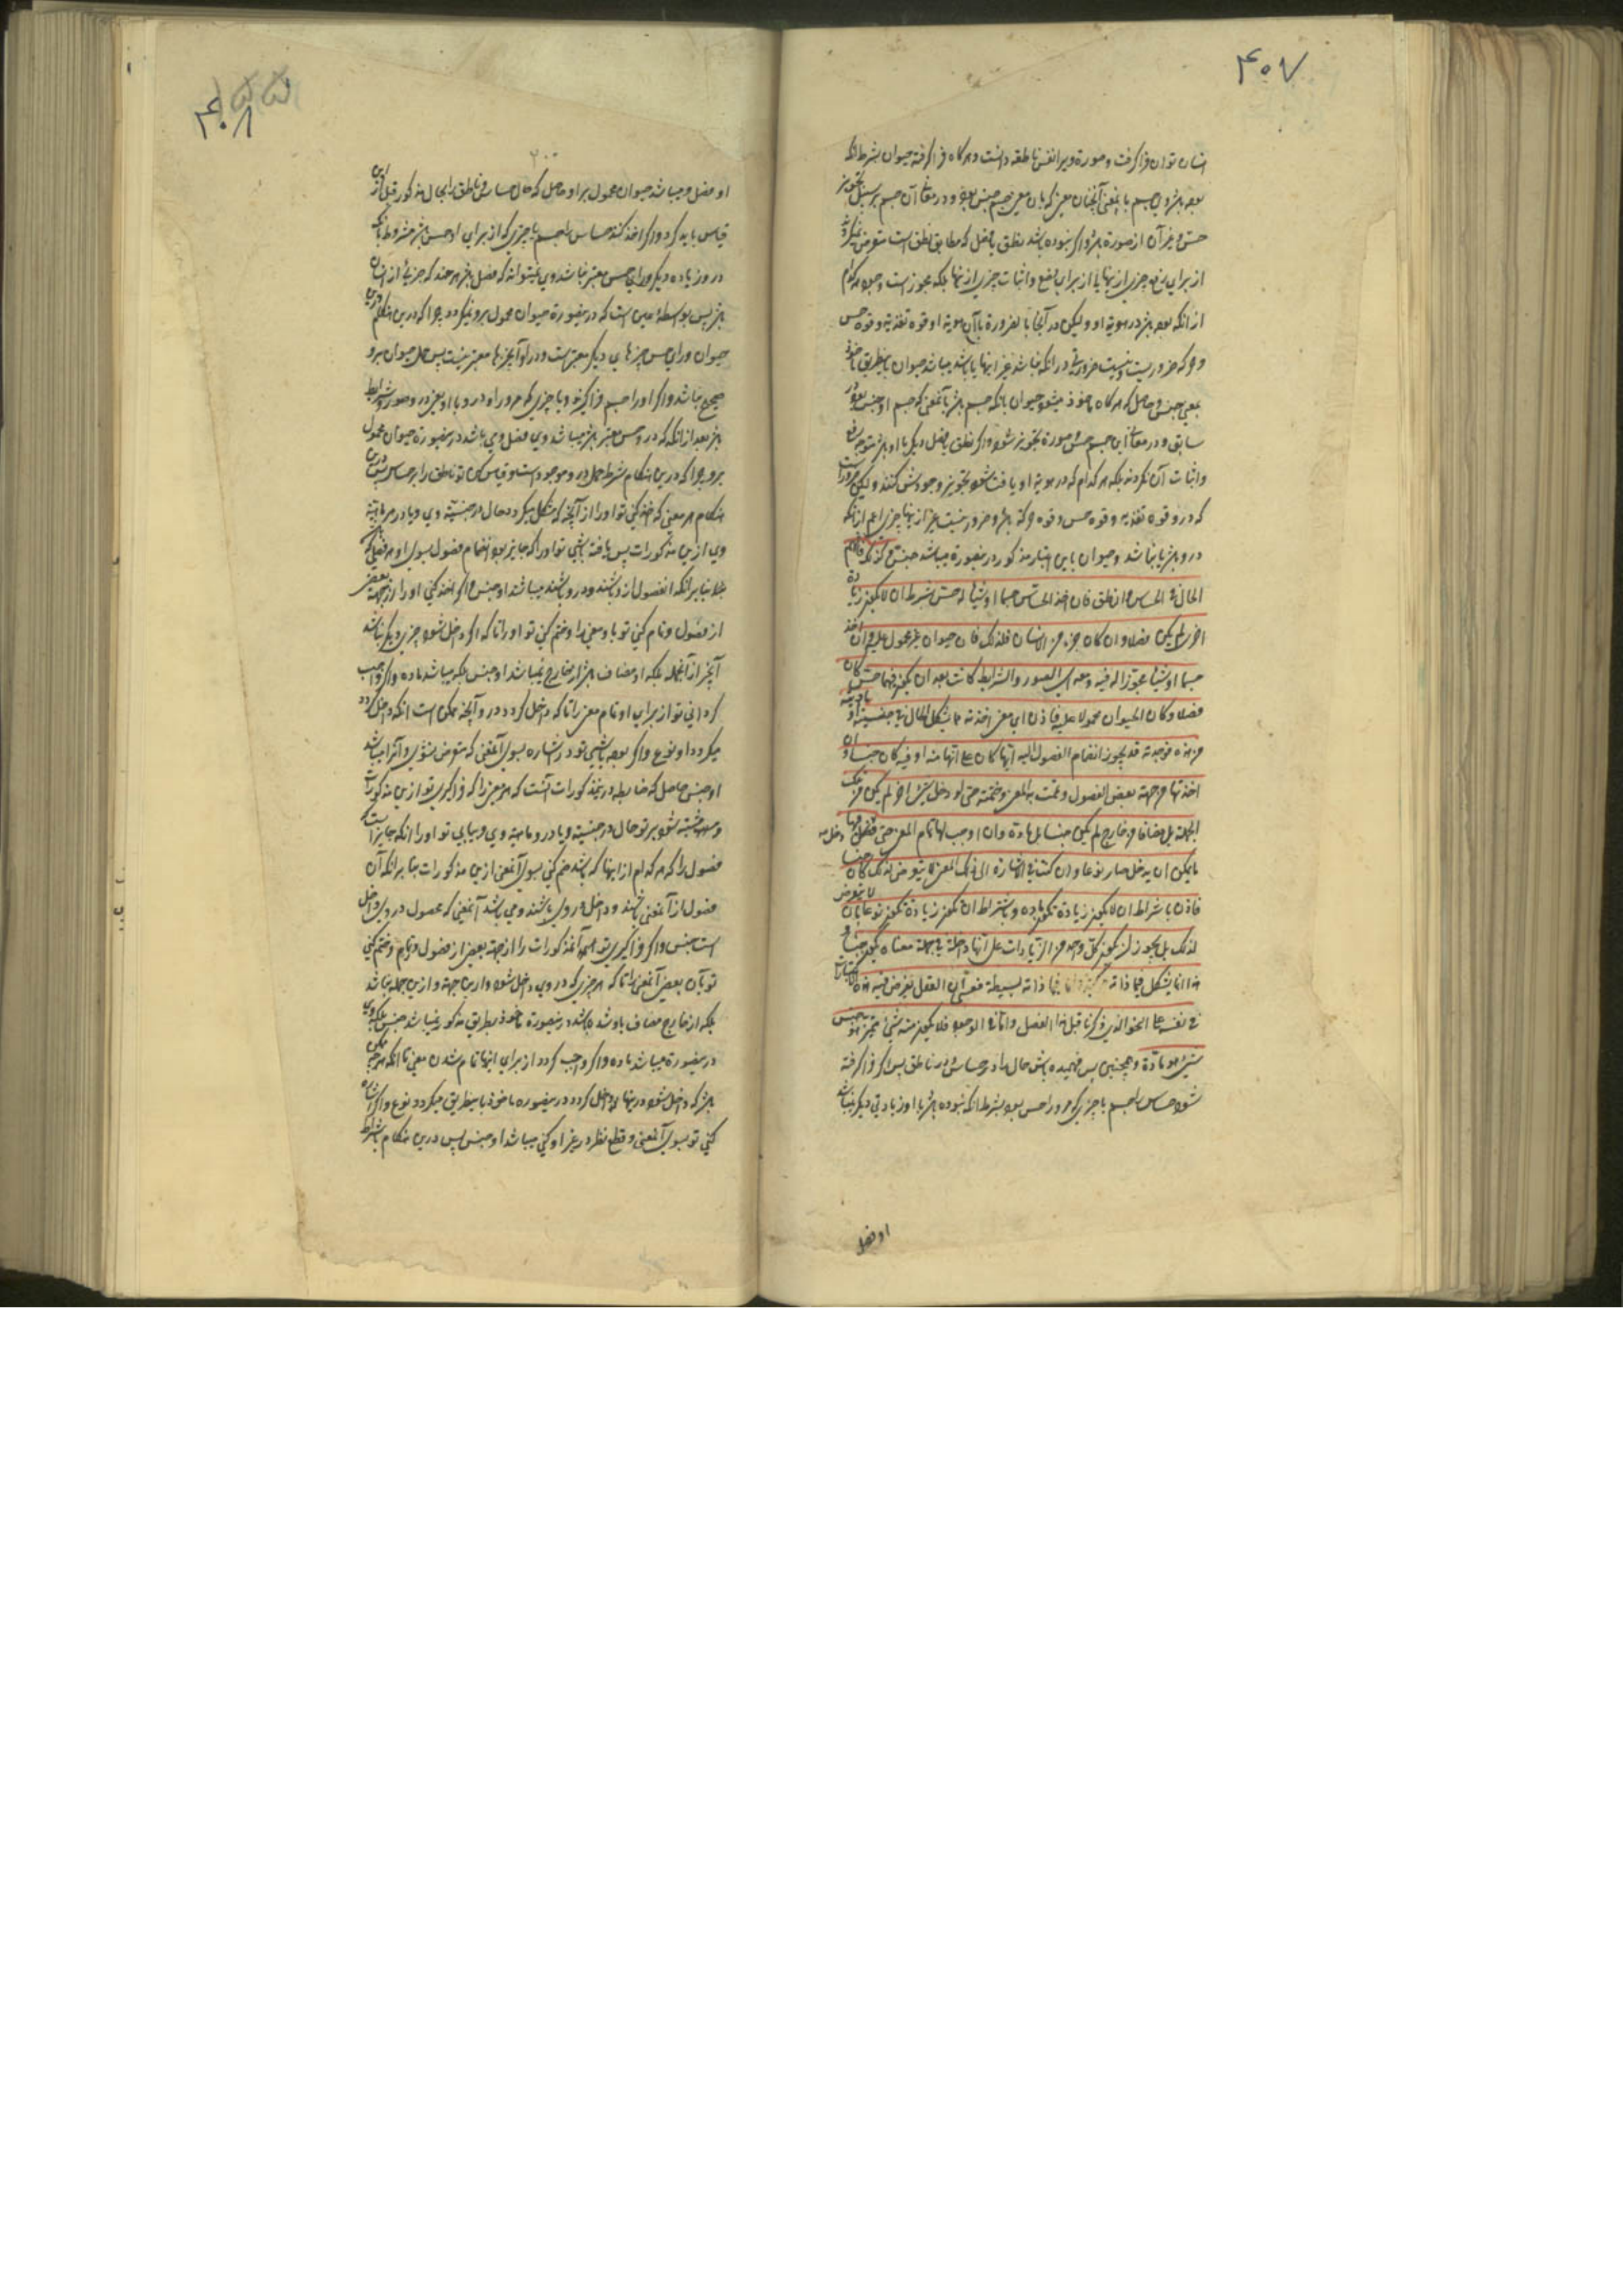 ۴۰۷
انسان توان فرا گرفت و صورة ویرا نفس ناطقه دانست و هرگاه فرا گرفته حیوان بشرط انکه
بوده باشد وی جسم با معنی آنچنان معنی که بان معنی جسم جنس بود و در معانی آن جسم بر سبیل تجویز
حس و غیر آن از صورة باشد و اگر نبوده باشد نطق یا فصل که مطابق نطق است متعرض نمیگردد
از برای رفع چیزی از اینها یا از برای وضع و اثبات چیزی از اینها بلکه مجوز است وجود هر کدام
از انکه بوده باشد در هویة او و لیکن در آنجا بالضرورة با آن هویة او قوه تغذیه و قوه حس
و حرکه ضروریست و نیست ضرورتی در انکه نباشد غیر اینها یا باشد میباشد حیوان باینطریق ماخوذ
بمعنی جنس و حاصل که هر گاه ماخوذ میشود حیوان بانکه جسم باشد بآنمعنی که جسم او جنس بود در
سابق و در معانی این جسم حس و صورة تجویز شود و اگر نطق یا فصل دیگر با او باشد متوجه رفع
و اثبات آن نکردند بلکه هر کدام که در هویة او یافت شود تجویز وجودش کنند و لیکن ضرور است
که در و قوه تغذیه و قوه حس و قوه حرکة باشد و ضرور نیست غیر از اینها چیزی اعم از انکه
در و باشد یا نباشد و حیوان باین اعتبار مذکور در ینصورة میباشد جنس و کذلک فافهم
الحال فی الحساس و الناطق فان اخذ الحساس جسما او شیئا له حس بشرط ان لا یکون زیادة
اخری لم یکن فصلا و ان کان جزء من الانسان فلذلک فان حیوان غیر محمول علیه و ان اخذ
جسما او شیئا مجوزا له فیه و معه ای الصور و الشرایط کانت بعد ان یکون فیها حس کان
فصلا و کان الحیوان محمولا علیه فاذن ای معنی اخذته مما یشکل الحال فی جنسیته او مادیته
من هذه فوجدته قد یجوز انضمام الفصول الیه ایها کان علی انها منه او فیه کان جنسا و ان
اخذتها من جهة بعض الفصول و تممت به المعنی و ختمته حتی لو دخل شیء اخر لم یکن من تلک
الجملة بل مضافا من خارج لم یکن جنسا بل مادة و ان اوجب لها تمام المعنی حتی دخل فیها
ما یمکن ان یدخل صار نوعا و ان کنت فی الاشارة الی ذلک المعنی لا یتعرض لذلک کان جنسا
فاذن باشتراط ان لا یکون زیادة یکون مادة و باشتراط ان یکون زیادة یکون نوعا بان لا یتعرض
لذلک بل یجوز ان یکون کل واحد من الزیادات علی انها داخلة فی جملة معناه یکون جنسا و
هذا انما یشکل فیما ذاته مرکبة و اما فیما ذاته بسیطة فعسی ان العقل یفرض فیه هذه الاعتبارات
فی نفسه علی النحو الذی ذکرنا قبل هذا الفصل و اما فی الوجود فلا یکون منه شیء متمیز هو جنس
شیء هو مادة و همچنین پس فهمیده باش حال را در حساس و در ناطق پس اگر فرا گرفته
شود حساس را جسم یا چیزی که مر او را حس بود بشرط انکه نبوده باشد با او زیادتی دیگر نمیباشد
او فصل
۴۰۸
او فصل و میباشد حیوان محمول بر او حاصل که حال حساس و ناطق را بحال مذکور قبل از این
قیاس باید کرد و اگر اخذ کنند حساس را جسم یا چیزی که از برای او حس باشد مشروط بانکه
در و زیاده دیگر ورای حس معتبر نباشد وی نمیتواند که فصل باشد هر چند که جزئی از انسان
باشد پس بواسطه همین است که در ینصورة حیوان محمول بر و نمیگردد چرا که درین هنگام در
حیوان ورای حس چیزهای دیگر معتبر است و در او آنچیزها معتبر نیست پس حمل حیوان بر و
صحیح نباشد و اگر او را جسم فرا گیرند و یا چیزی که مر او را در و یا او بعینه در و صور و شرایط
باشد بعد از انکه که در و حس معتبر باشد میباشد وی فصل وی باشد در ینصورة حیوان محمول
بر و چرا که درین هنگام شرط حمل در و موجود است و قیاس کن تو ناطق را بر حساس پس درین
هنگام هر معنی که اخذ کنی تو او را از آنچه که مشکل میگردد حال در جنسیة وی و یا در مادیة
وی ازین مذکورات پس یافته باشی تو او را که جایز بود انضمام فصول بسوی او هر فصلی که
باشد بنا برانکه انفصول از و باشند و در و باشند میباشد او جنس و اگر اخذ کنی او را از جهة بعض
از فصول و تمام کنی تو باو معنی را و ختم کنی تو او را تا که اگر داخل شود چیزی دیگر نباشد
آنچیز از آنجمله بلکه او مضاف باشد از خارج نمیباشد او جنس بلکه میباشد ماده و اگر واجب
گردانی تو از برای او تمام معنی را تا که داخل گردد در و آنچه ممکن است انکه داخل گردد
میگردد او نوع و اگر بوده باشی تو در اشاره بسوی آنمعنی که متعرض نشوی و آنرا میباشد
او جنس حاصل که ضابطه در ینمذکورات آنست که هر معنی را که فرا گیری تو ازین مذکورات
و مشتبه شود بر تو حال در جنسیة و یا در و مادیة وی و بیابی تو او را انکه جایز است
فصول را که هر کدام از اینها که باشد ضم کنی بسوی آنمعنی ازین مذکورات بنا برانکه آن
فصول از آنمعنی باشند و داخل در وی باشند و می باشد آنمعنی که محصول در وی داخل
است جنس و اگر فرا گیری تو آنمذکورات را از جهة بعض از فصول و تمام و ختم کنی
تو بآن بعض آنمعنی را تا که هر چیزی که در وی داخل شود و ازین جهة و ازین جمله نباشد
بلکه از خارج مضاف باو شده باشد در ینصورة ماخوذ بطریق مذکور نمیباشد جنس بلکه وی
در ینصورة میباشد ماده و اگر واجب گردد از برای اینها تمام شدن معنی تا انکه هر چه ممکن
باشد که داخل شود در اینها داخل گردد در ینصوره ماخوذ باینطریق میگردد نوع و اگر اشاره
کنی تو بسوی آنمعنی و قطع نظر در غیر او کنی میباشد او جنس پس درین هنگام باشتراط